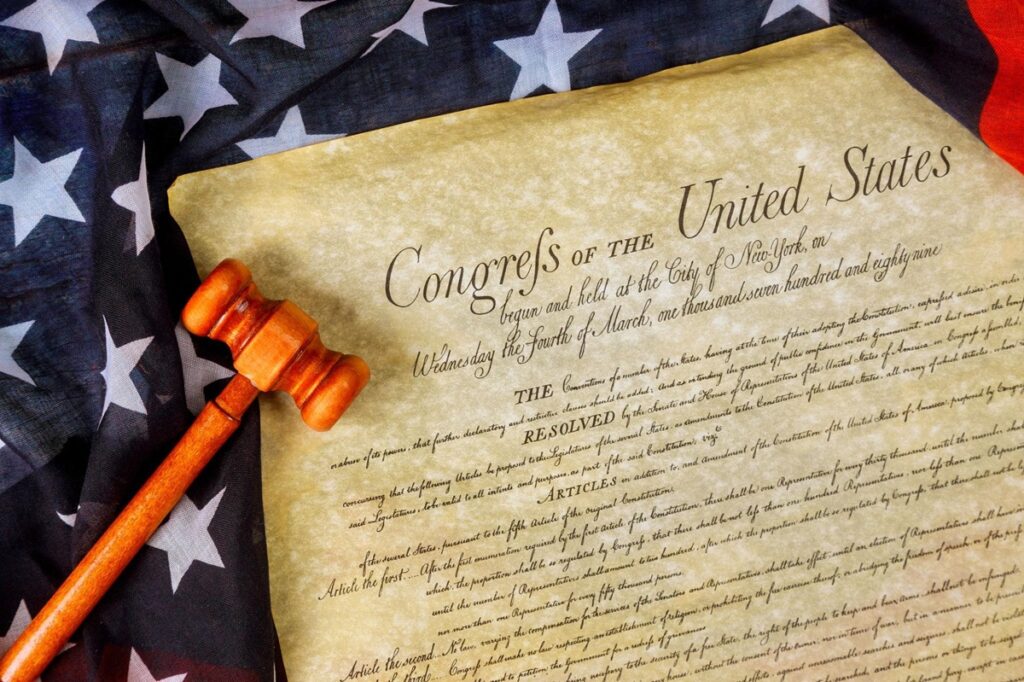 Congreſs OF THE United States
begun and held at the City of New-York, on
Wednesday the Fourth of March, one thousand seven hundred and eighty nine
THE Conventions of a number of the States, having at the time of their adopting the Constitution, expreſsed a desire, in order
or abuse of its powers, that further declaratory and restrictive clauses should be added: And as extending the ground of public confidence in the Government, will best insure the
RESOLVED by the Senate and House of Representatives of the United States of America, in Congreſs aſsembled,
concurring that the following Articles be proposed to the Legislatures of the several States, as amendments to the Constitution of the United States, all, or any of which Articles, when
said Legislatures, to be valid to all intents and purposes, as part of the said Constitution; vizt
ARTICLES in addition to, and Amendment of the Constitution of the United States of America, proposed by Congreſs
of the several States, pursuant to the fifth Article of the original Constitution.
Article the first.... After the first enumeration required by the first Article of the Constitution, there shall be one Representative for every thirty thousand, until the number shall
which, the proportion shall be so regulated by Congreſs, that there shall be not leſs than one hundred Representatives, nor leſs than one Representative
until the number of Representatives shall amount to two hundred, after which the proportion shall be so regulated by Congreſs, that there shall not be
nor more than one Representative for every fifty thousand persons.
Article the second. No law, varying the compensation for the services of the Senators and Representatives, shall take effect, until an election of Representatives shall have
Congreſs shall make no law respecting an establishment of religion, or prohibiting the free exercise thereof; or abridging the freedom of speech, or of the
and to petition the Government for a redreſs of grievances
the security of a free State, the right of the people to keep and bear Arms, shall not be infringed.
house, without the consent of the owner, nor in time of war, but in a manner to be
effects, against unreasonable searches and seizures, shall not be
to be searched, and the persons or things to be seized